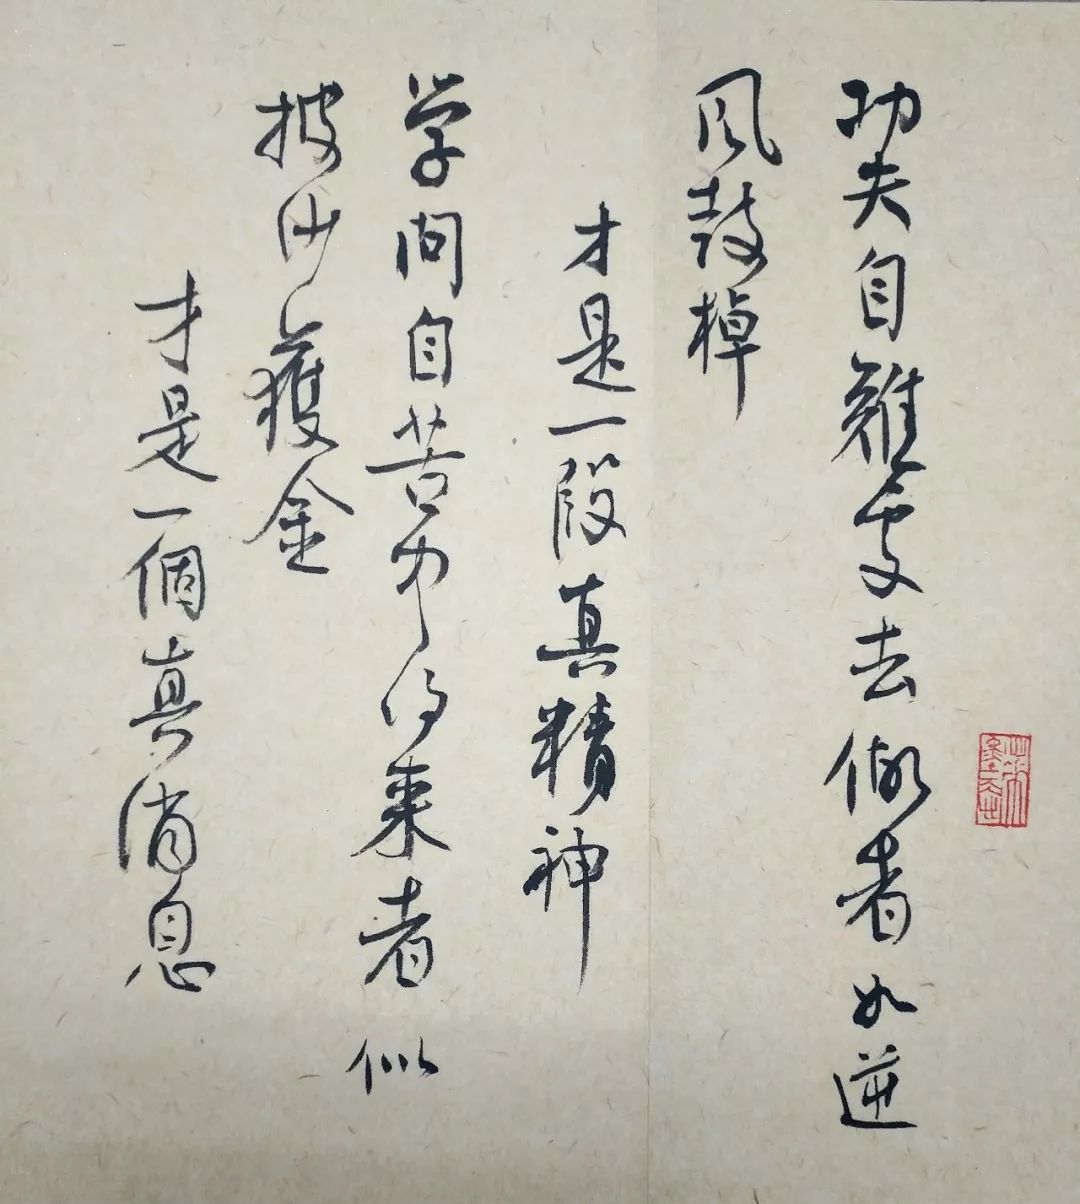 功夫自難處去做者如逆
風鼓棹
才是一段真精神
学問自苦中得来者似
披沙獲金
才是一個真消息